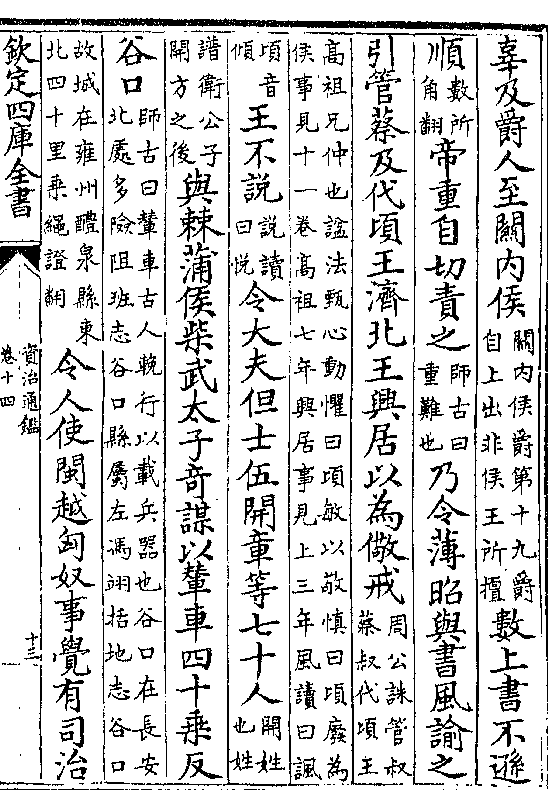 辜及爵人至關内侯關内侯爵第十九爵自上出非侯王所擅數上書不遜
順數所角翻帝重自切責之師古曰重難也乃令薄昭與書風諭之
引管蔡及代頃王濟北王興居以為儆戒周公誅管叔蔡叔代頃王
高祖兄仲也諡法甄心動懼曰頃敏以敬慎曰頃廢為侯事見十一卷高祖七年興居事見上三年風讀曰諷
頃音傾王不說說讀曰悅令大夫但士伍開章等七十人開姓也姓
譜衛公子開方之後與棘蒲侯柴武太子奇謀以輦車四十乘反
谷口師古曰輦車古人輓行以載兵器也谷口在長安北處多險阻班志谷口縣屬左馮翊括地志谷口
故城在雍州醴泉縣東北四十里乘繩證翻令人使閩越匈奴事覺有司治
欽定四庫全書
資治通鑑
卷十四
十三